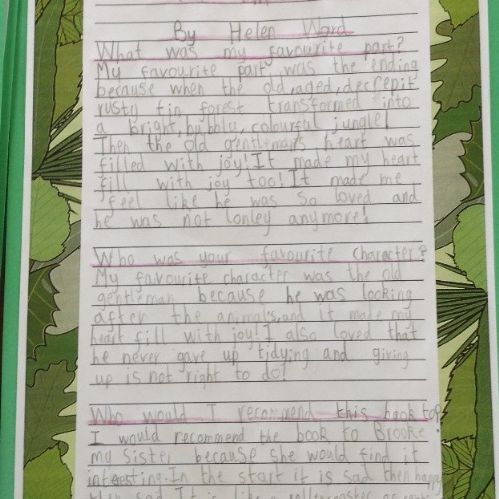 By Helen Ward
What was my favourite part?
My favourite part was the ending
because when the old, aged, decrepit
rusty tin forest transformed into
a bright, bubbly, colourful jungle!
Then the old gentleman's heart was
filled with joy! It made my heart
fill with joy too! It made me
feel like he was so loved and
he was not lonley anymore!
Who was your favourite character?
My favourite character was the old
gentleman because he was looking
after the animals, and it made my
heart fill with joy! I also loved that
he never gave up tidying and giving
up is not right to do!
Who would I recommend this book to?
I would recommend the book to Brooke
my sister because she would find it
interesting. In the start it is sad then happy
then sad. It is like a rollercoaster